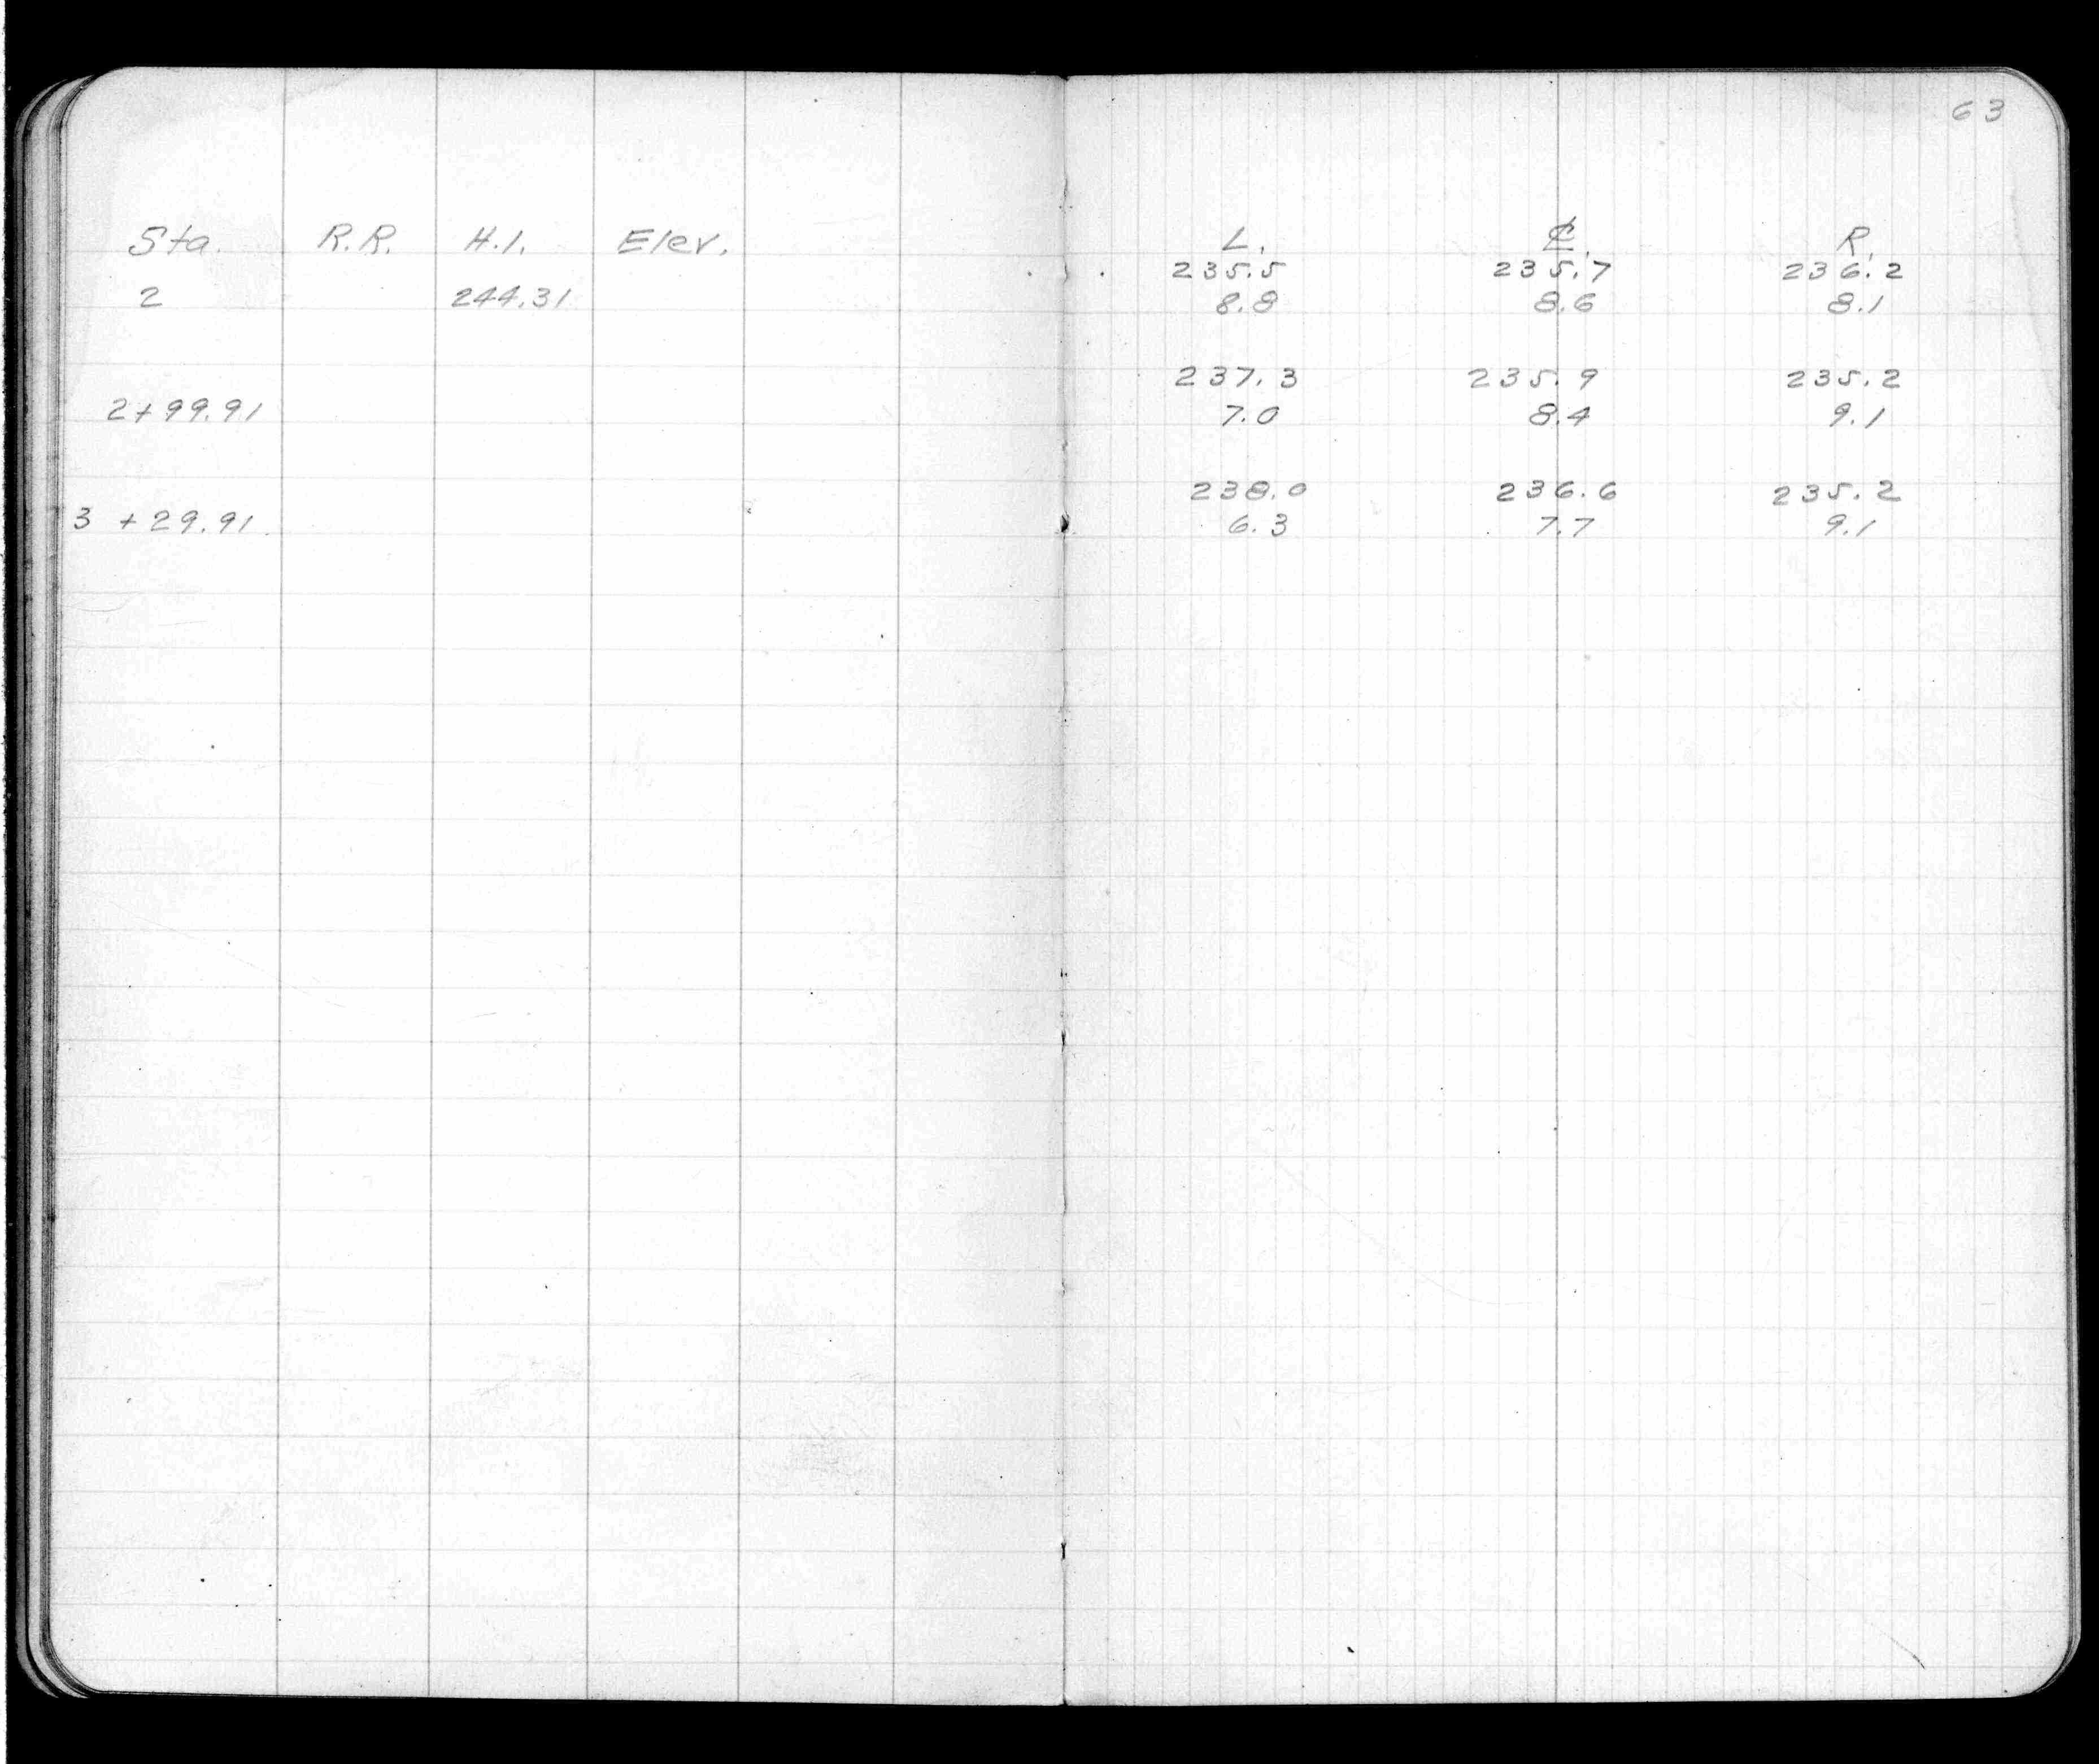 63
Sta. R.R. H.I. Elev. L. ℄. R.
235.5 235.7 236.2
2 244.31 8.8 8.6 8.1
237.3 235.9 235.2
2+99.91 7.0 8.4 9.1
238.0 236.6 235.2
3 +29.91 6.3 7.7 9.1